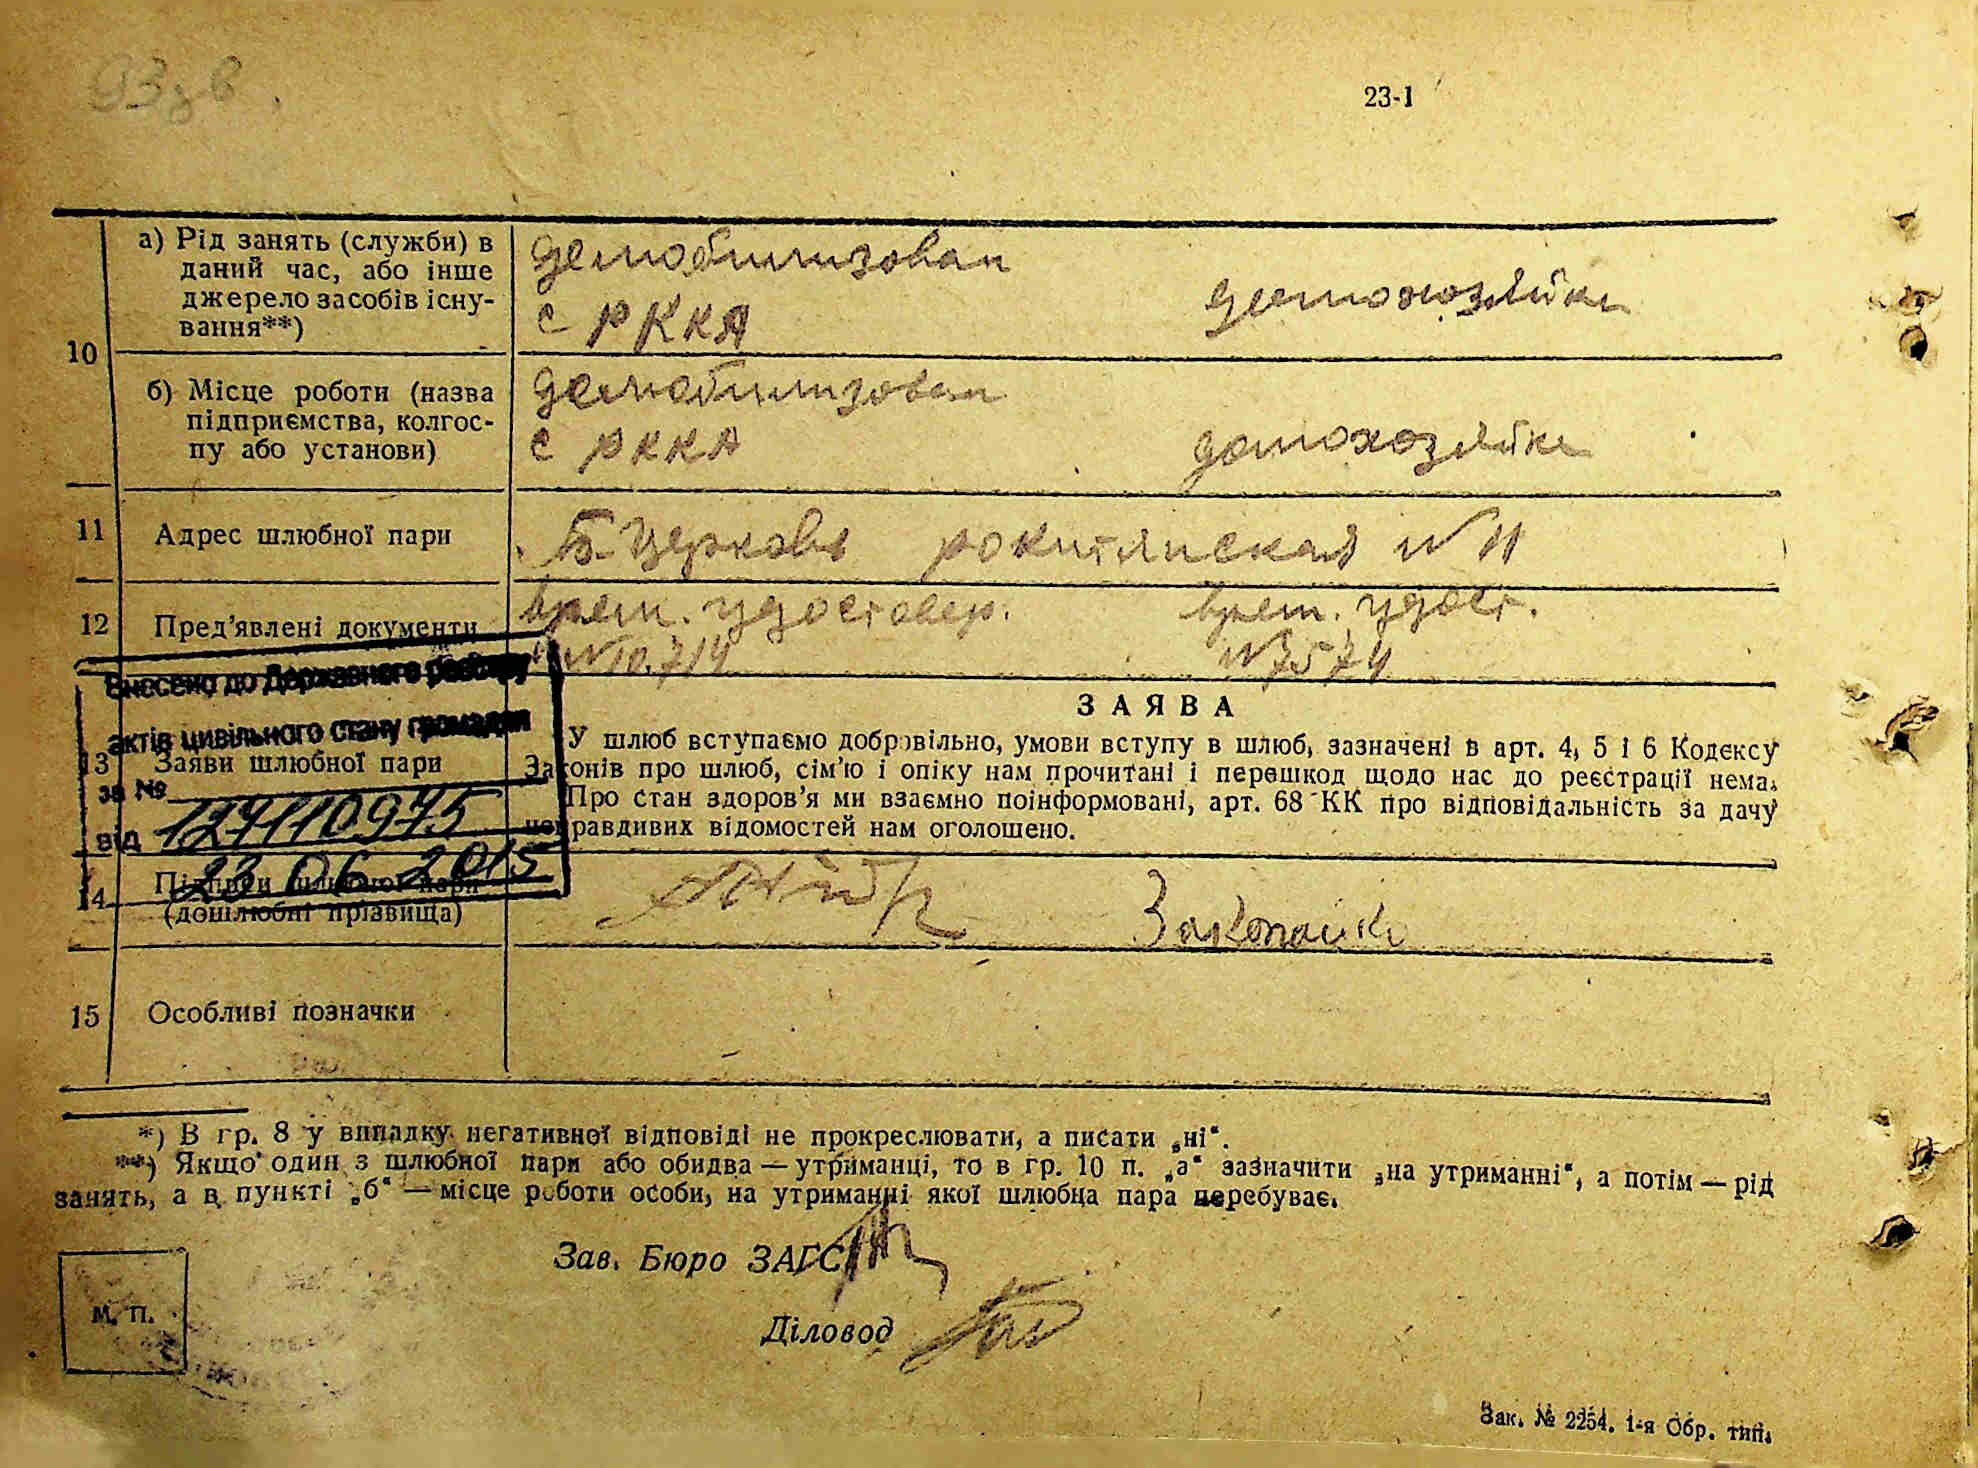 93 зв.
23-1
10
а) Рід занять (служби) в
даний час, або інше
джерело засобів існу-
вання**)
демобилизован
с РККА
домохозяйка
б) Місце роботи (назва
підприємства, колгос-
пу або установи)
демобилизован
с РККА
домохозяйка
11
Адрес шлюбної пари
Б-Церковь рокитянская № 11
12
Пред'явлені документи
врем. удостовер.
№ 10.714
врем. удост.
№ 7574
Внесено до Державного реєстру
актів цивільного стану громадян
за №
127110975
від
23 06 2015
13
Заяви шлюбної пари
ЗАЯВА
У шлюб вступаємо добровільно, умови вступу в шлюб, зазначені в арт. 4, 5 і 6 Кодексу
Законів про шлюб, сім'ю і опіку нам прочитані і перешкод щодо нас до реєстрації нема.
Про стан здоров'я ми взаємно поінформовані, арт. 68 КК про відповідальність за дачу
неправдивих відомостей нам оголошено.
14
Підписи шлюбної пари
(дошлюбні прізвища)
15
Особливі позначки
*) В гр. 8 у випадку негативної відповіді не прокреслювати, а писати „ні“.
**) Якщо один з шлюбної пари або обидва — утриманці, то в гр. 10 п. „а“ зазначити „на утриманні“, а потім — рід
занять, а в пункті „б“ — місце роботи особи, на утриманні якої шлюбна пара перебуває.
Зав. Бюро ЗАГС
Діловод
М. П.
Зак. № 2254. 1-я Обр. тип.